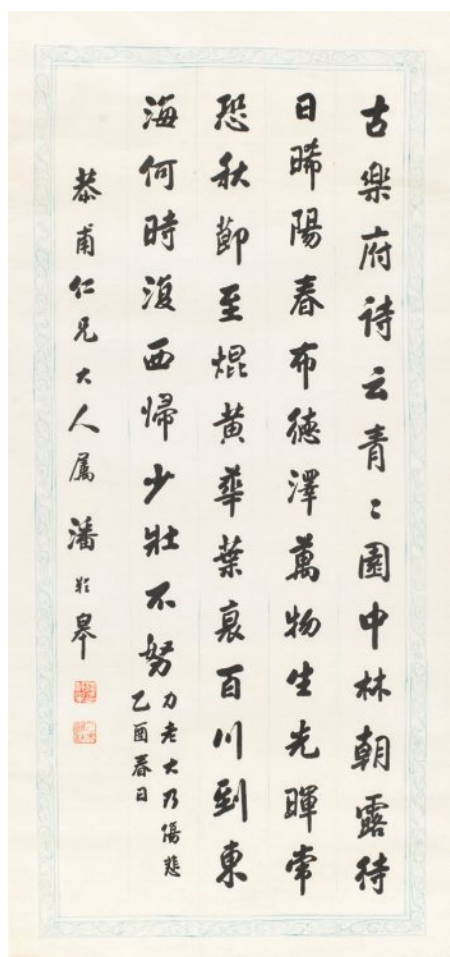 古樂府詩云青〻園中林朝露待
日晞陽春布德澤萬物生光暉常
恐秋節至焜黄華葉衰百川到東
海何時復西歸少壯不努
力老大乃傷悲
乙酉春日
恭甫仁兄大人属 潘齡皋